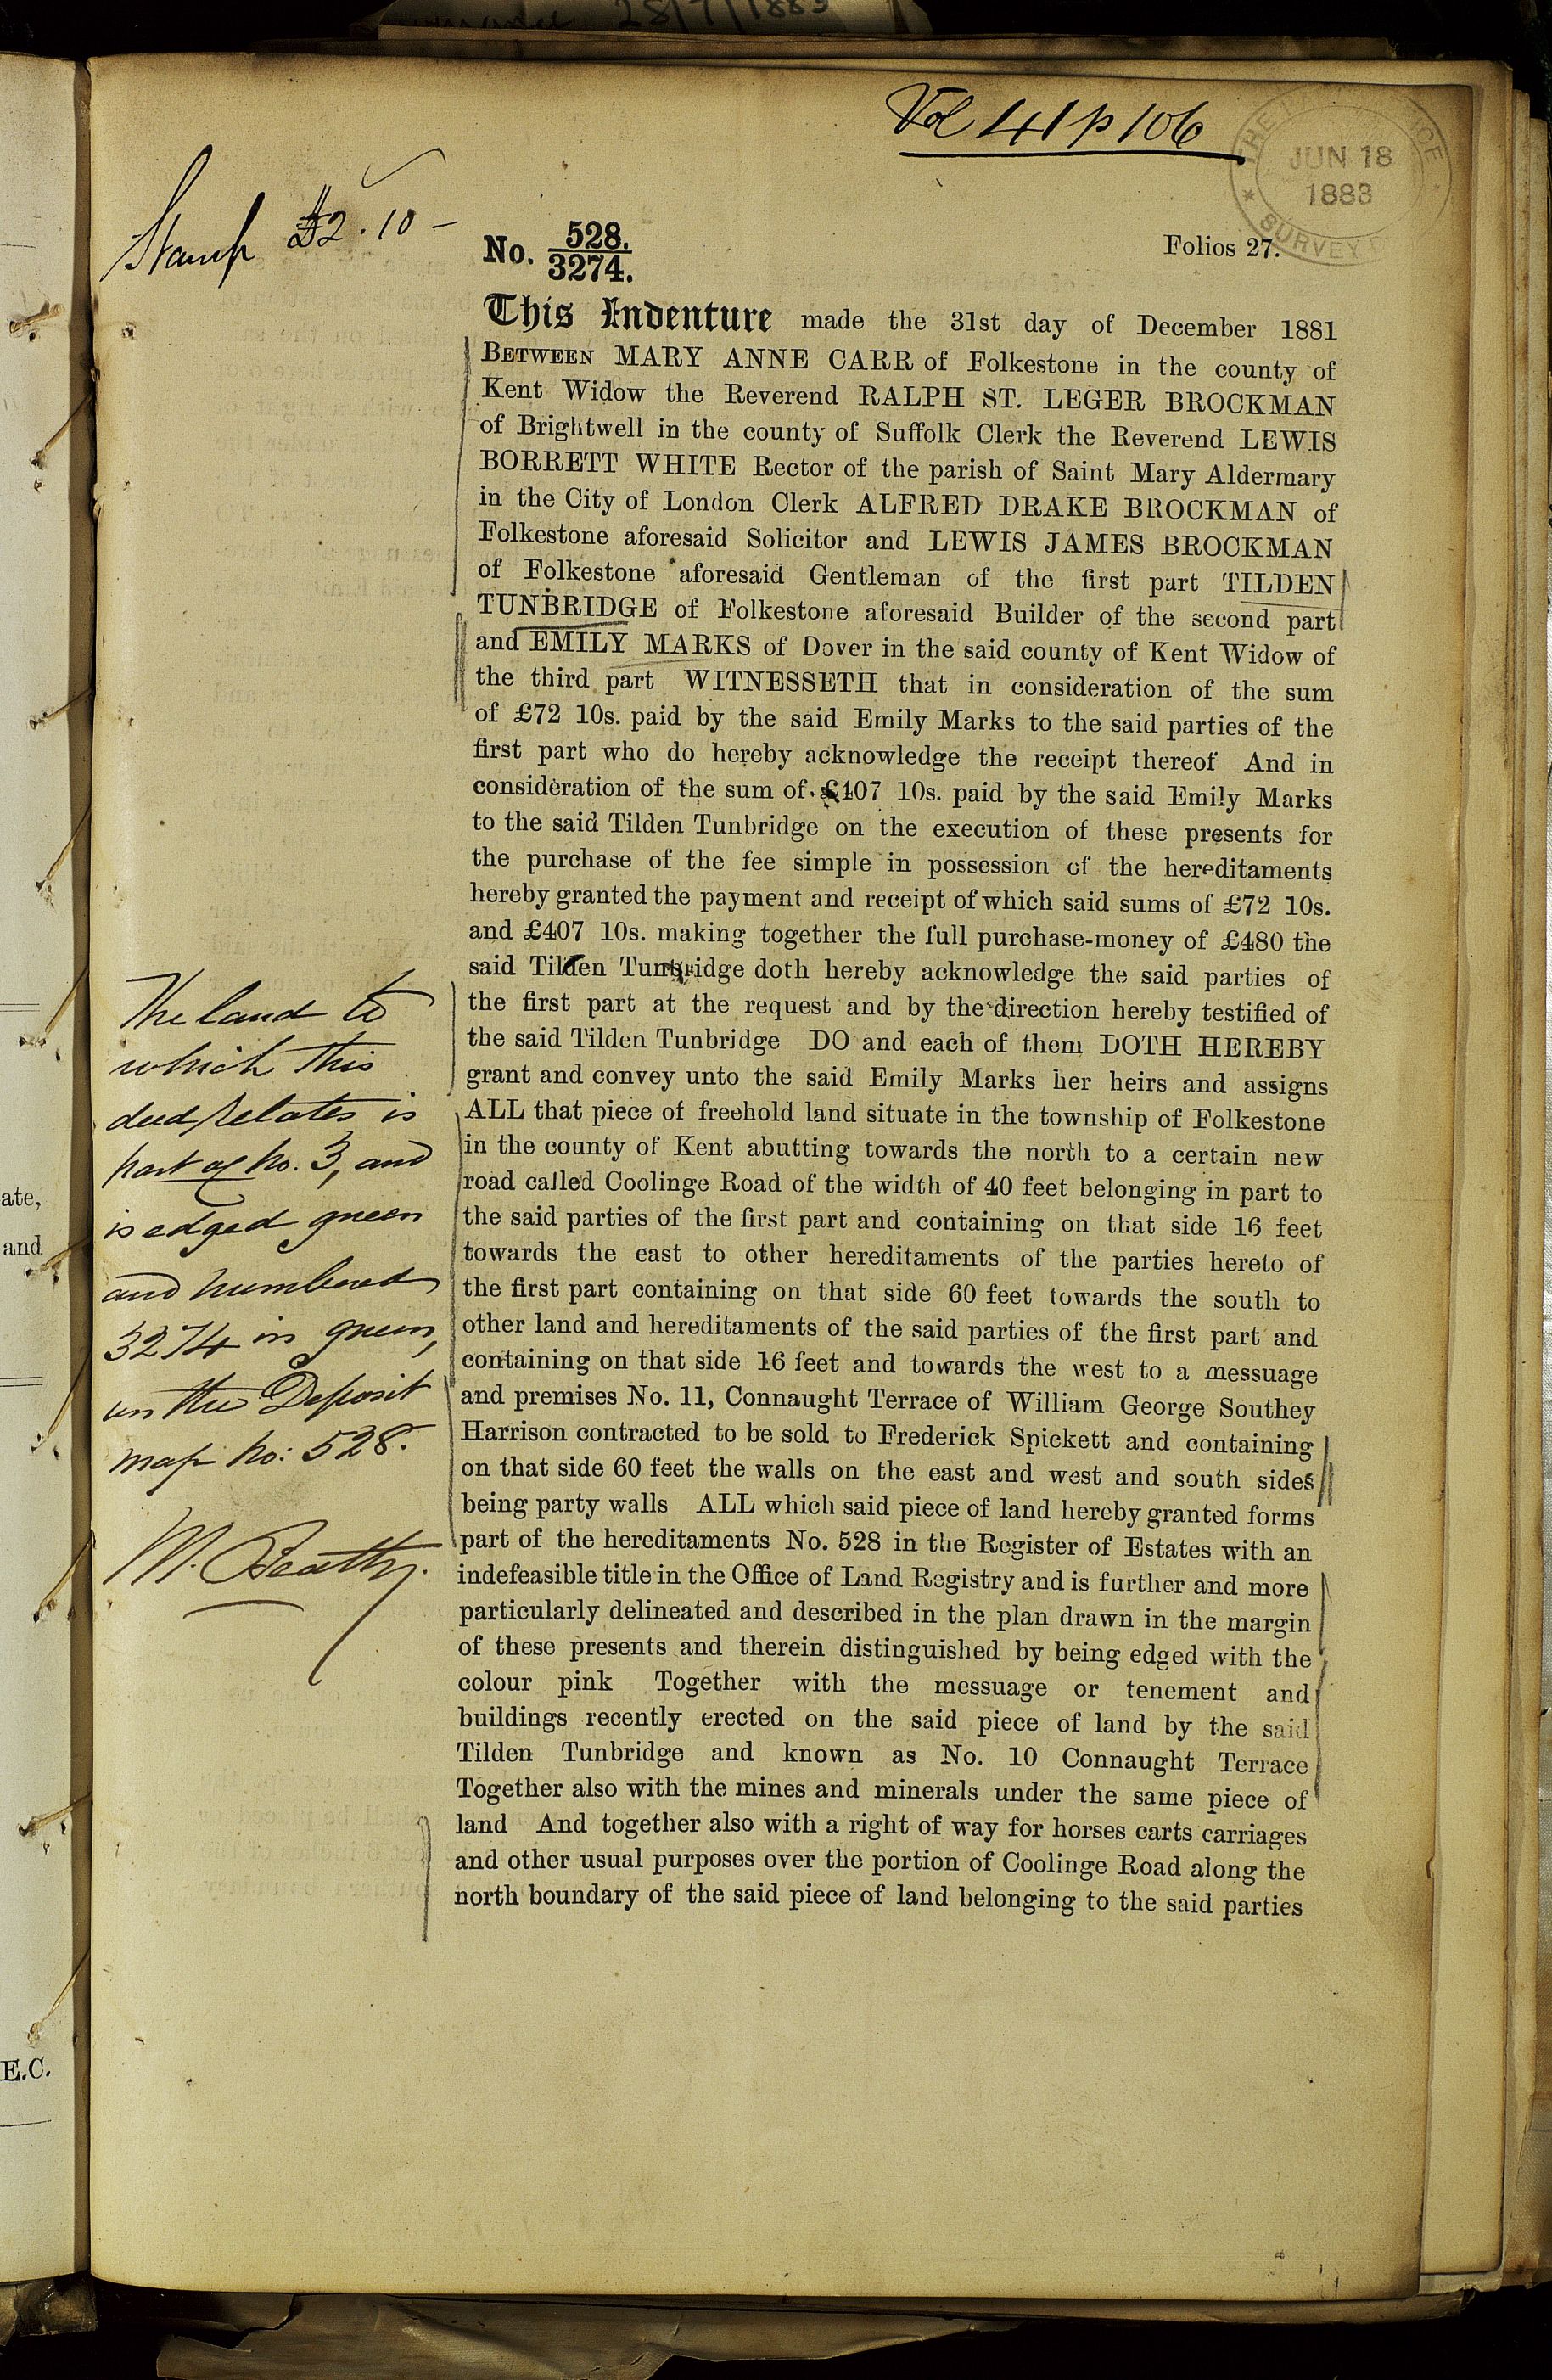 28/7/1883
Vol 41 p 106
JUN 18
1883
SURVEY
Stamp £2.10 –
No. 528.
3274.
Folios 27.
This Indenture made the 31st day of December 1881
BETWEEN MARY ANNE CARR of Folkestone in the county of
Kent Widow the Reverend RALPH ST. LEGER BROCKMAN
of Brightwell in the county of Suffolk Clerk the Reverend LEWIS
BORRETT WHITE Rector of the parish of Saint Mary Aldermary
in the City of London Clerk ALFRED DRAKE BROCKMAN of
Folkestone aforesaid Solicitor and LEWIS JAMES BROCKMAN
of Folkestone aforesaid Gentleman of the first part TILDEN
TUNBRIDGE of Folkestone aforesaid Builder of the second part
and EMILY MARKS of Dover in the said county of Kent Widow of
the third part WITNESSETH that in consideration of the sum
of £72 10s. paid by the said Emily Marks to the said parties of the
first part who do hereby acknowledge the receipt thereof And in
consideration of the sum of £407 10s. paid by the said Emily Marks
to the said Tilden Tunbridge on the execution of these presents for
the purchase of the fee simple in possession of the hereditaments
hereby granted the payment and receipt of which said sums of £72 10s.
and £407 10s. making together the full purchase-money of £480 the
said Tilden Tunbridge doth hereby acknowledge the said parties of
the first part at the request and by the direction hereby testified of
the said Tilden Tunbridge DO and each of them DOTH HEREBY
grant and convey unto the said Emily Marks her heirs and assigns
ALL that piece of freehold land situate in the township of Folkestone
in the county of Kent abutting towards the north to a certain new
road called Coolinge Road of the width of 40 feet belonging in part to
the said parties of the first part and containing on that side 16 feet
towards the east to other hereditaments of the parties hereto of
the first part containing on that side 60 feet towards the south to
other land and hereditaments of the said parties of the first part and
containing on that side 16 feet and towards the west to a messuage
and premises No. 11, Connaught Terrace of William George Southey
Harrison contracted to be sold to Frederick Spickett and containing
on that side 60 feet the walls on the east and west and south sides
being party walls ALL which said piece of land hereby granted forms
part of the hereditaments No. 528 in the Register of Estates with an
indefeasible title in the Office of Land Registry and is further and more
particularly delineated and described in the plan drawn in the margin
of these presents and therein distinguished by being edged with the
colour pink Together with the messuage or tenement and
buildings recently erected on the said piece of land by the said
Tilden Tunbridge and known as No. 10 Connaught Terrace
Together also with the mines and minerals under the same piece of
land And together also with a right of way for horses carts carriages
and other usual purposes over the portion of Coolinge Road along the
north boundary of the said piece of land belonging to the said parties
The land to
which this
deed relates is
part of No. 3, and
is edged green
and numbered
3274 in green,
on the Deposit
map No: 528.
M. Beatty.
ate,
and
E.C.